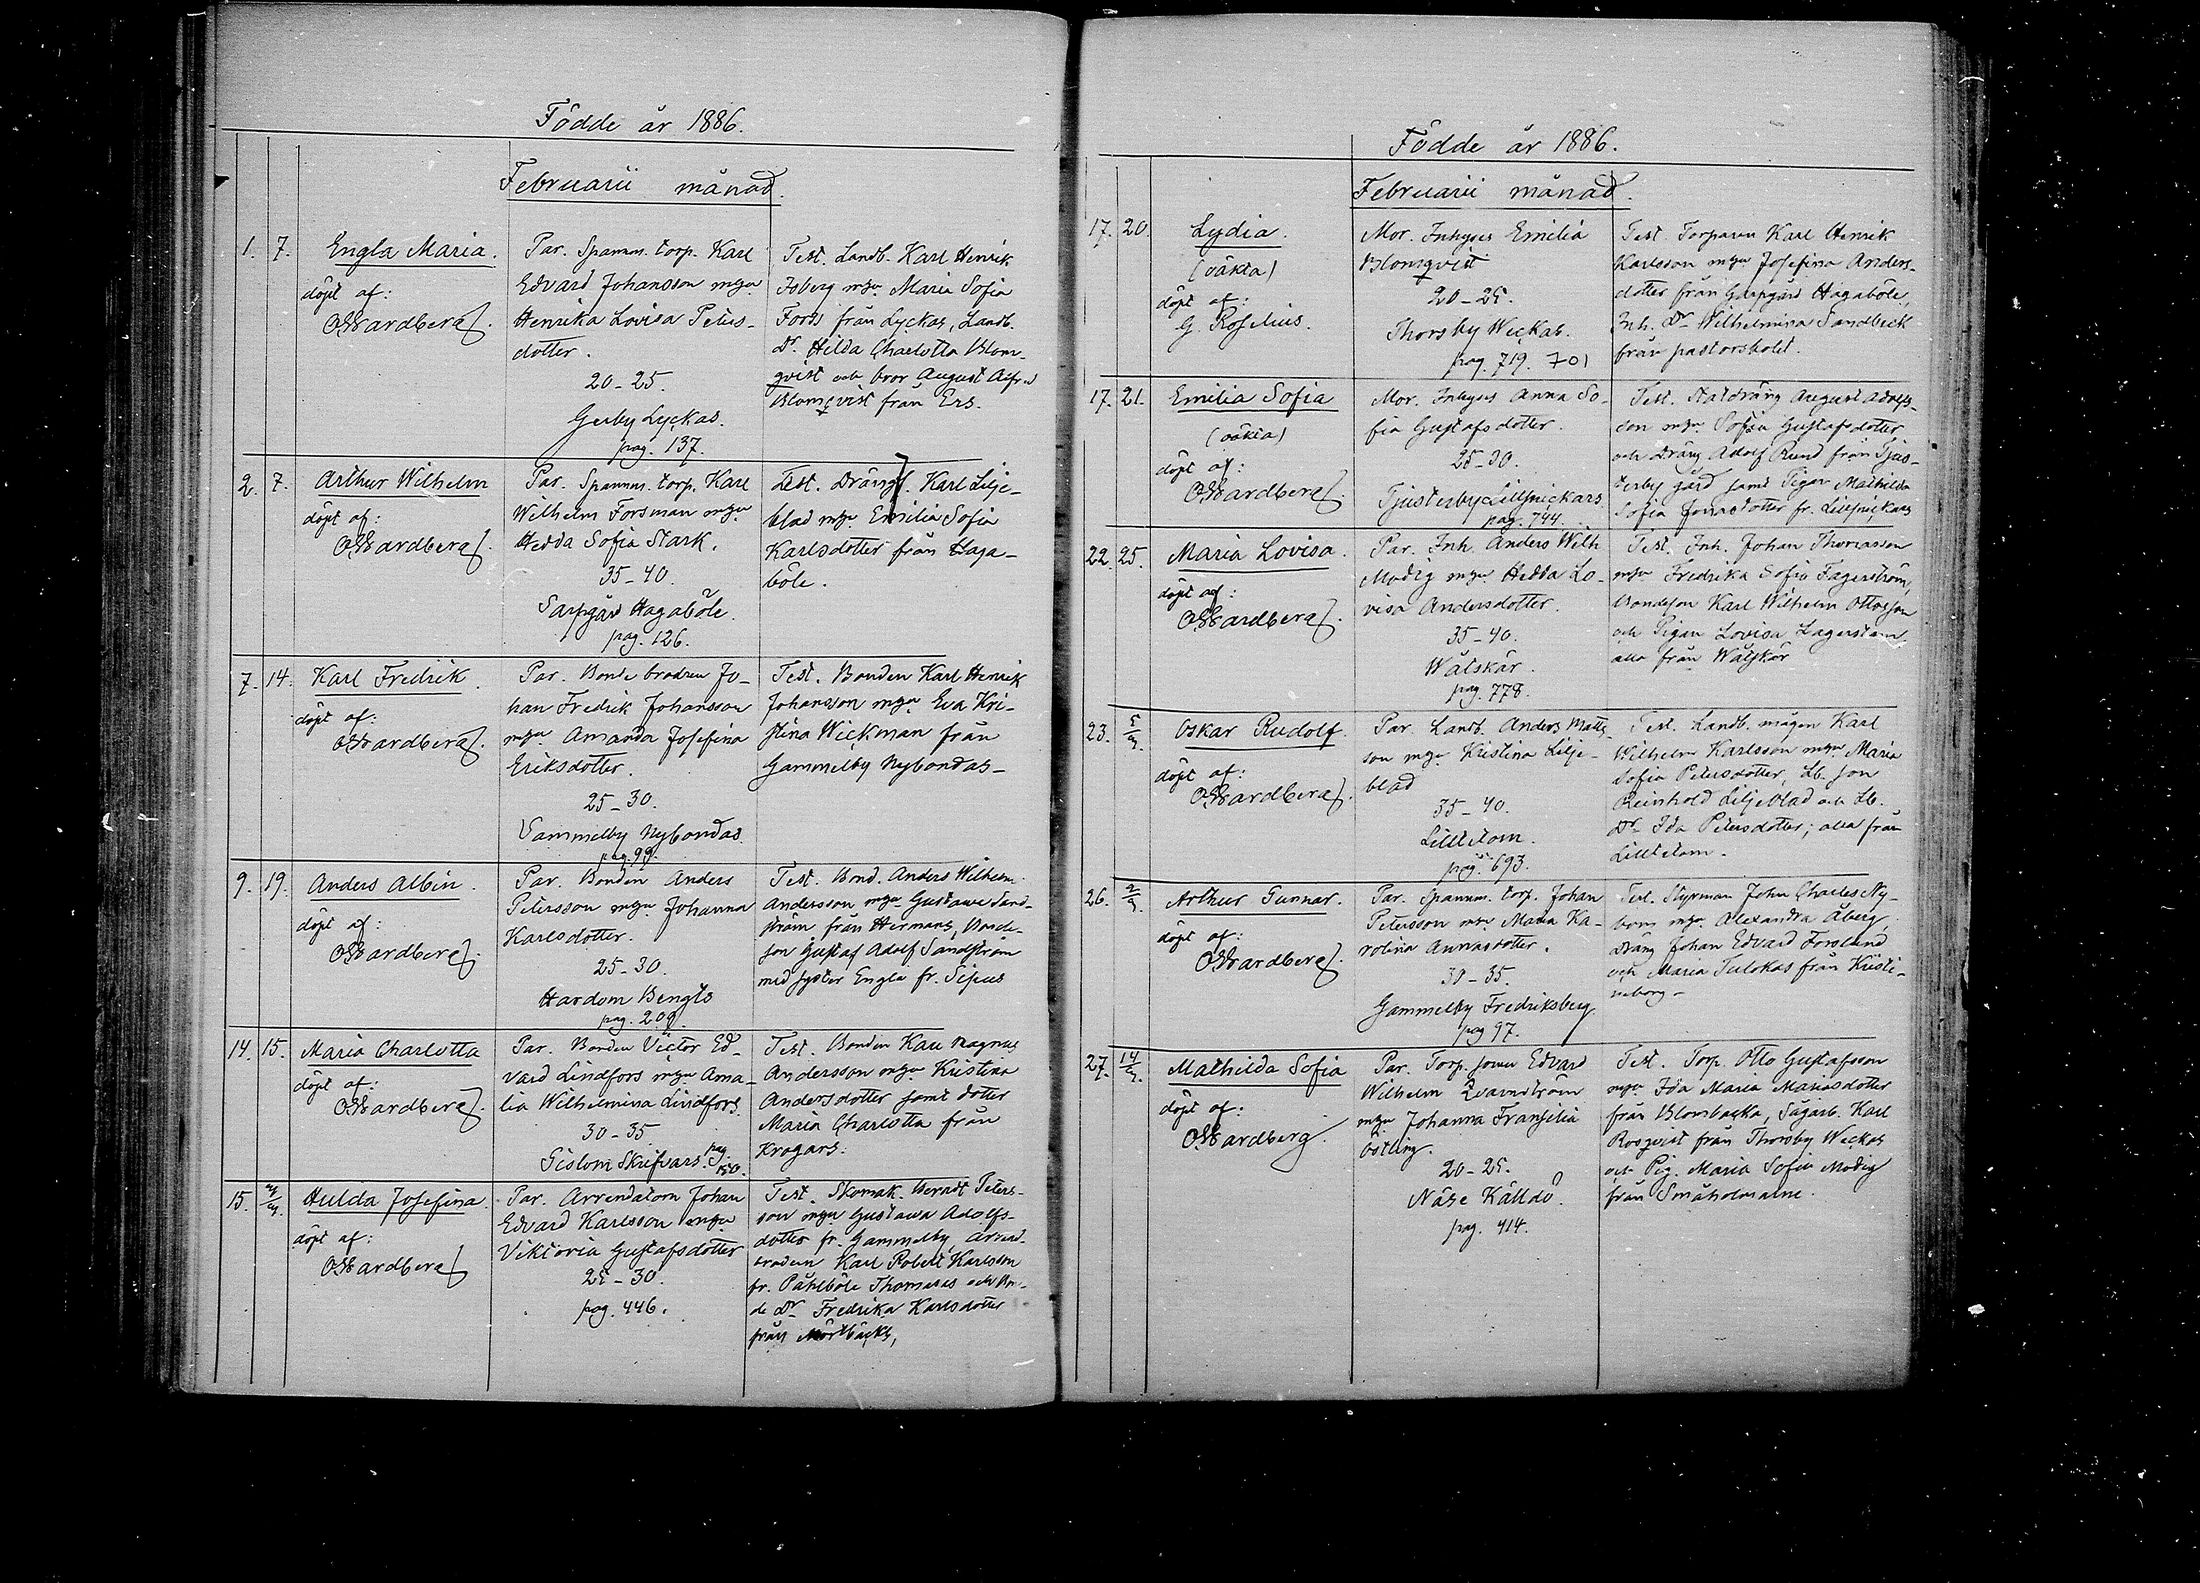 Födde år 1886.
Februarii månad.
1. 7. Engla Maria.
döpt af:
Par. Spannm. torp. Karl
Edvard Johansson m hu
Henrika Lovisa Peters-
dotter.
20-25.
Gerby Lyckas.
pag. 137.
Test. Landb. Karl Henrik
Isberg m hu Maria Sofia
Forss från Lyckas, Landb.
Dr. Hilda Charlotta Blom-
qvist och bror August Alfred
Blomqvist från Ers.
2. 7. Arthur Wilhelm
döpt af:
Par. Spannm. torp. Karl
Wilhelm Forsman m hu
Hedda Sofia Stark.
35-40.
Sarfgård Hagaböle.
pag. 126.
Test. Drängf. Karl Lilje-
blad m hu Emilia Sofia
Karlsdotter från Haga-
böle.
7. 14. Karl Fredrik.
döpt af:
Par. Bonde brodren Jo-
han Fredrik Johansson
m hu Amanda Josefina
Eriksdotter.
25-30.
Gammelby Nybondas
pag. 99.
Test. Bonden Karl Henrik
Johansson m hu Eva Kri-
stina Wickman från
Gammelby Nybondas-
9. 19. Anders Albin.
döpt af:
Par. Bonden Anders
Petersson m hu Johanna
Karlsdotter.
25-30.
Hardom Bengts
pag. 209.
Test. Bond. Anders Wilhelm
Andersson m hu Gustawa Sand-
ström från Hermans, Bonde-
son Gustaf Adolf Sandström
med syster Engla fr.
14. 15. Maria Charlotta
döpt af:
Par. Bonden Victor Ed-
vard Lindfors m hu Ama-
lia Wilhelmina Lindfors.
30-35.
Gislom Skrifvars. pag.
150.
Test. Bonden Karl Magnus
Andersson m hu Kristina
Andersdotter samt dotter
Maria Charlotta från
Krogars.
15. Hulda Josefina.
döpt af:
Par. Arrendatorn Johan
Edvard Karlsson m hu
Viktoria Gustafsdotter
25-30.
pag. 446.
Test. Skomak. Berndt Peters-
son m hu Gustawa Adolfs-
dotter fr. Gammelby, Arrend.
brodern Karl Robert Karlsson
fr. Påhlböle Thomases och Bon-
de Dr Fredrika Karlsdotter
från Mörtbäcks,
Födde år 1886.
Februarii månad.
17. 20. Lydia.
(oäkta)
döpt af:
G. Roselius.
Mor. Inhyses Emilia
Blomqvist
20-25.
Thorsby Weckas.
pag. 719. 701
Test. Torparen Karl Henrik
Karlsson m hu Josefina Anders-
dotter från Hagaböle,
Inh. Dr Wilhelmina Sandbeck
från pastorsbolet.
17. 21. Emilia Sofia
(oäkta)
döpt af:
Mor. Inhyses Anna So-
fia Gustafsdotter.
25-30.
Tjusterby Lillsnickars
pag. 744.
Test. Statdräng August Adolfs-
son m hu Sofia Gustafsdotter
och Dräng Adolf Rund från Tjus-
terby gård samt Pigan Mathilda
Sofia fr. Lillsnickars
22. 25. Maria Lovisa.
döpt af:
Par. Inh. Anders Wilh
Modig m hu Hedda Lo-
visa Andersdotter.
35-40.
Wåtskär.
pag. 778.
Test. Inh. Johan Thomasson
m hu Fredrika Sofia Fagerström,
Bondeson Karl Wilhelm Ottosson
och Pigan Lovisa Lagerstam
alla från Wåtskär
23. 5/3. Oskar Rudolf.
döpt af:
Par. Landb. Anders Matts-
son m hu Kristina Lilje-
blad
35-40.
Lilltetom.
pag. 693.
Test. Landb. mågen Karl
Wilhelm Karlsson m hu Maria
Sofia Petersdotter, Lb. son
Reinhold Liljeblad och Lb.
Dr Ida Petersdotter; alla från
Lilltetom.
26. Arthur Gunnar.
döpt af:
Par. Spannm. torp. Johan
Petersson m hu Maria Ka-
rolina Annasdotter.
30-35.
Gammelby Fredriksberg
pag 97.
Test. Styrman John Charles Ny-
bom m hu Alexandra Åberg,
Dräng Johan Edvard Forslund
och Maria Tulokas från Kristi-
neborg-
27. 14/3. Mathilda Sofia
döpt af:
Par. Torp. sonen Edvard
Wilhelm Qvarnström
m hu Johanna Fransilia
Östling.
20-25.
Näse Källdö.
pag. 414.
Test. Torp. Otto Gustafsson
m hu Ida Maria Mariasdotter
från Blombacka, Sågarb. Karl
Rosqvist från Thorsby Weckas
och Pig. Maria Sofia Modig
från Småholmarne.